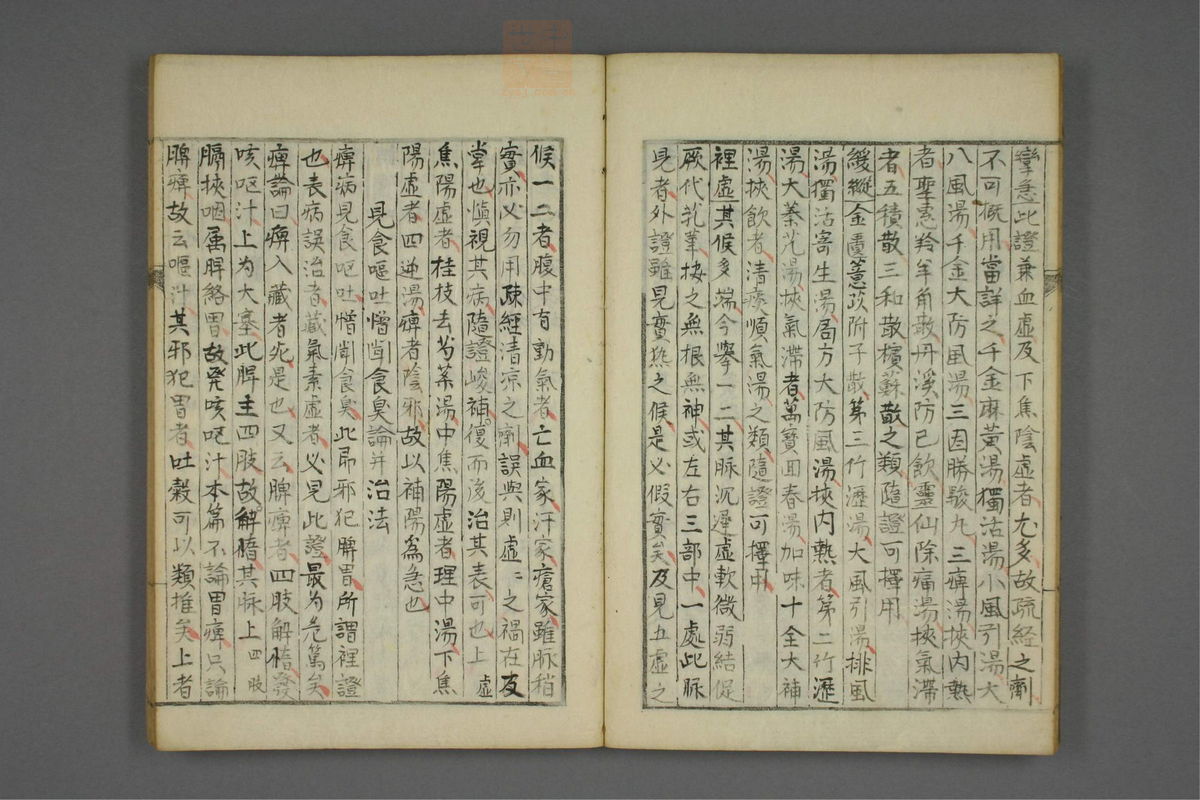 攣急此證兼血虛及下焦陰虛者尤多故疏經之劑
不可概用當詳之千金麻黃湯獨活湯小風引湯大
八風湯千金大防風湯三因勝駿丸三痺湯挾內熱
者羚羊角散丹溪防己飲靈仙除痛湯挾氣滯
者五積散三和散檳蘇散之類隨證可擇用
緩縱金匱薏苡附子散第三竹瀝湯大風引湯排風
湯獨活寄生湯局方大防風湯挾內熱者第二竹瀝
湯大秦艽湯挾氣滯者萬寶回春湯加味十全大補
湯挾飲者清痰順氣湯之類隨證可擇用
裡虛其候多端今擧一二其脉沉遲虛軟微弱結促
厥代芤革按之無根無神或左右三部中一處此脉
見者外證雖見實熱之候是必假實矣及見五虛之
候一二者腹中有動氣者亡血家汗家瘡家雖脉稍
實亦必勿用疎經清凉之劑誤與則虛〻之禍在反
掌也愼視其病隨證峻補復而後治其表可也上虛
焦陽虛者桂枝去芍藥湯中焦陽虛者理中湯下焦
陽虛者四逆湯痺者陰邪故以補陽爲急也
見食嘔吐憎聞食臭論并治法
痺病見食呕吐憎聞食臭此昂邪犯脾胃所謂裡證
也表病誤治者藏氣素虛者必見此證最为危篤矣
痺論曰痺入藏者死是也又云脾痺者四肢解惰發
咳呕汁上为大塞此脾主四肢故解惰其脉上四肢
膈挾咽属脾絡胃故發咳呕汁本篇不論胃痺只論
脾痺故云嘔汁其邪犯胃者吐穀可以類推矣上者